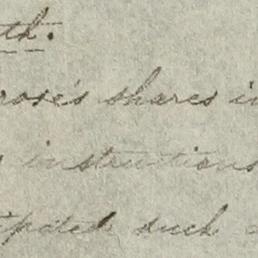 th.
rose's shares in
instructions
ipated such